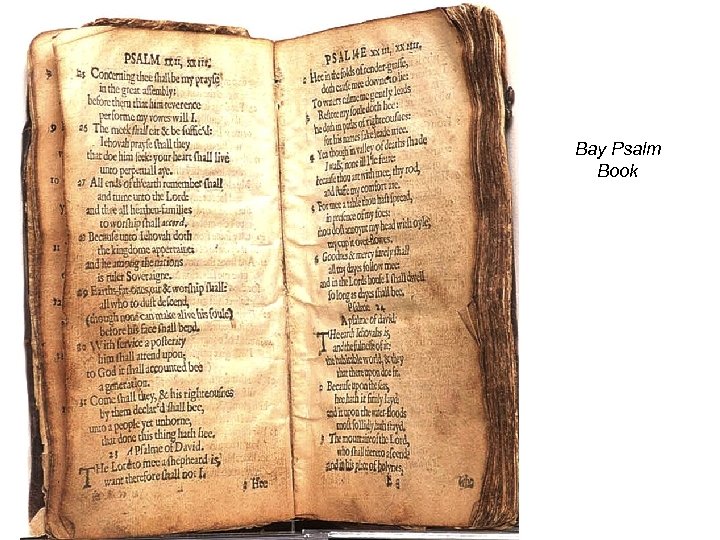 PSALM xxii, xxiii.
25 Concerning thee shall be my prayse
in the great assembly:
before them that him reverence
performe my vowes will I.
26 The meek shall eat & be suffic'd:
Iehovah prayse shall they
that doe him seek: your heart shall live
unto perpetuall aye.
27 All ends of th'earth remember shall
and turne unto the Lord:
and thee all heathen-families
to worship shall accord,
28 Because unto Iehovah doth
the kingdome appertaine:
and he among the nations
is ruler Soveraigne.
29 Earths-fat-ones, eat & worship shall:
all who to dust descend,
(though none can make alive his soule)
before his face shall bend.
30 With service a posterity
him shall attend upon;
to God it shall accounted bee
a generation.
31 Come shall they, & his righteousnes
by them declar'd shall bee,
unto a people yet unborne,
that done this thing hath hee.
23 A Psalme of David.
The Lord to mee a shepheard is,
want therefore shall not I.
2 Hee
PSALME xxiii, xxiiii.
2 Hee in the folds of tender-grasse,
doth cause mee downe to lie:
To waters calme me gently leads
3 Restore my soule doth hee:
he doth in paths of righteousnes:
for his names sake leade mee.
4 Yea though in valley of deaths shade
I walk, none ill I'le feare:
because thou art with mee, thy rod,
and staffe my comfort are.
5 For mee a table thou hast spread,
in presence of my foes:
thou dost annoynt my head with oyle,
my cup it over-flowes.
6 Goodnes & mercy surely shall
all my dayes follow mee:
and in the Lords house I shall dwell
so long as dayes shall bee.
Psalme 24
A psalme of david.
The earth Iehovahs is,
and the fulnesse of it:
the habitable world, & they
that there upon doe sit.
2 Because upon the seas,
hee hath it firmly layd:
and it upon the water-floods
most sollidly hath stayd.
3 The mountaine of the Lord,
who shall thereto ascend?
and in his place of holynes,
E 3 who
Bay Psalm
Book